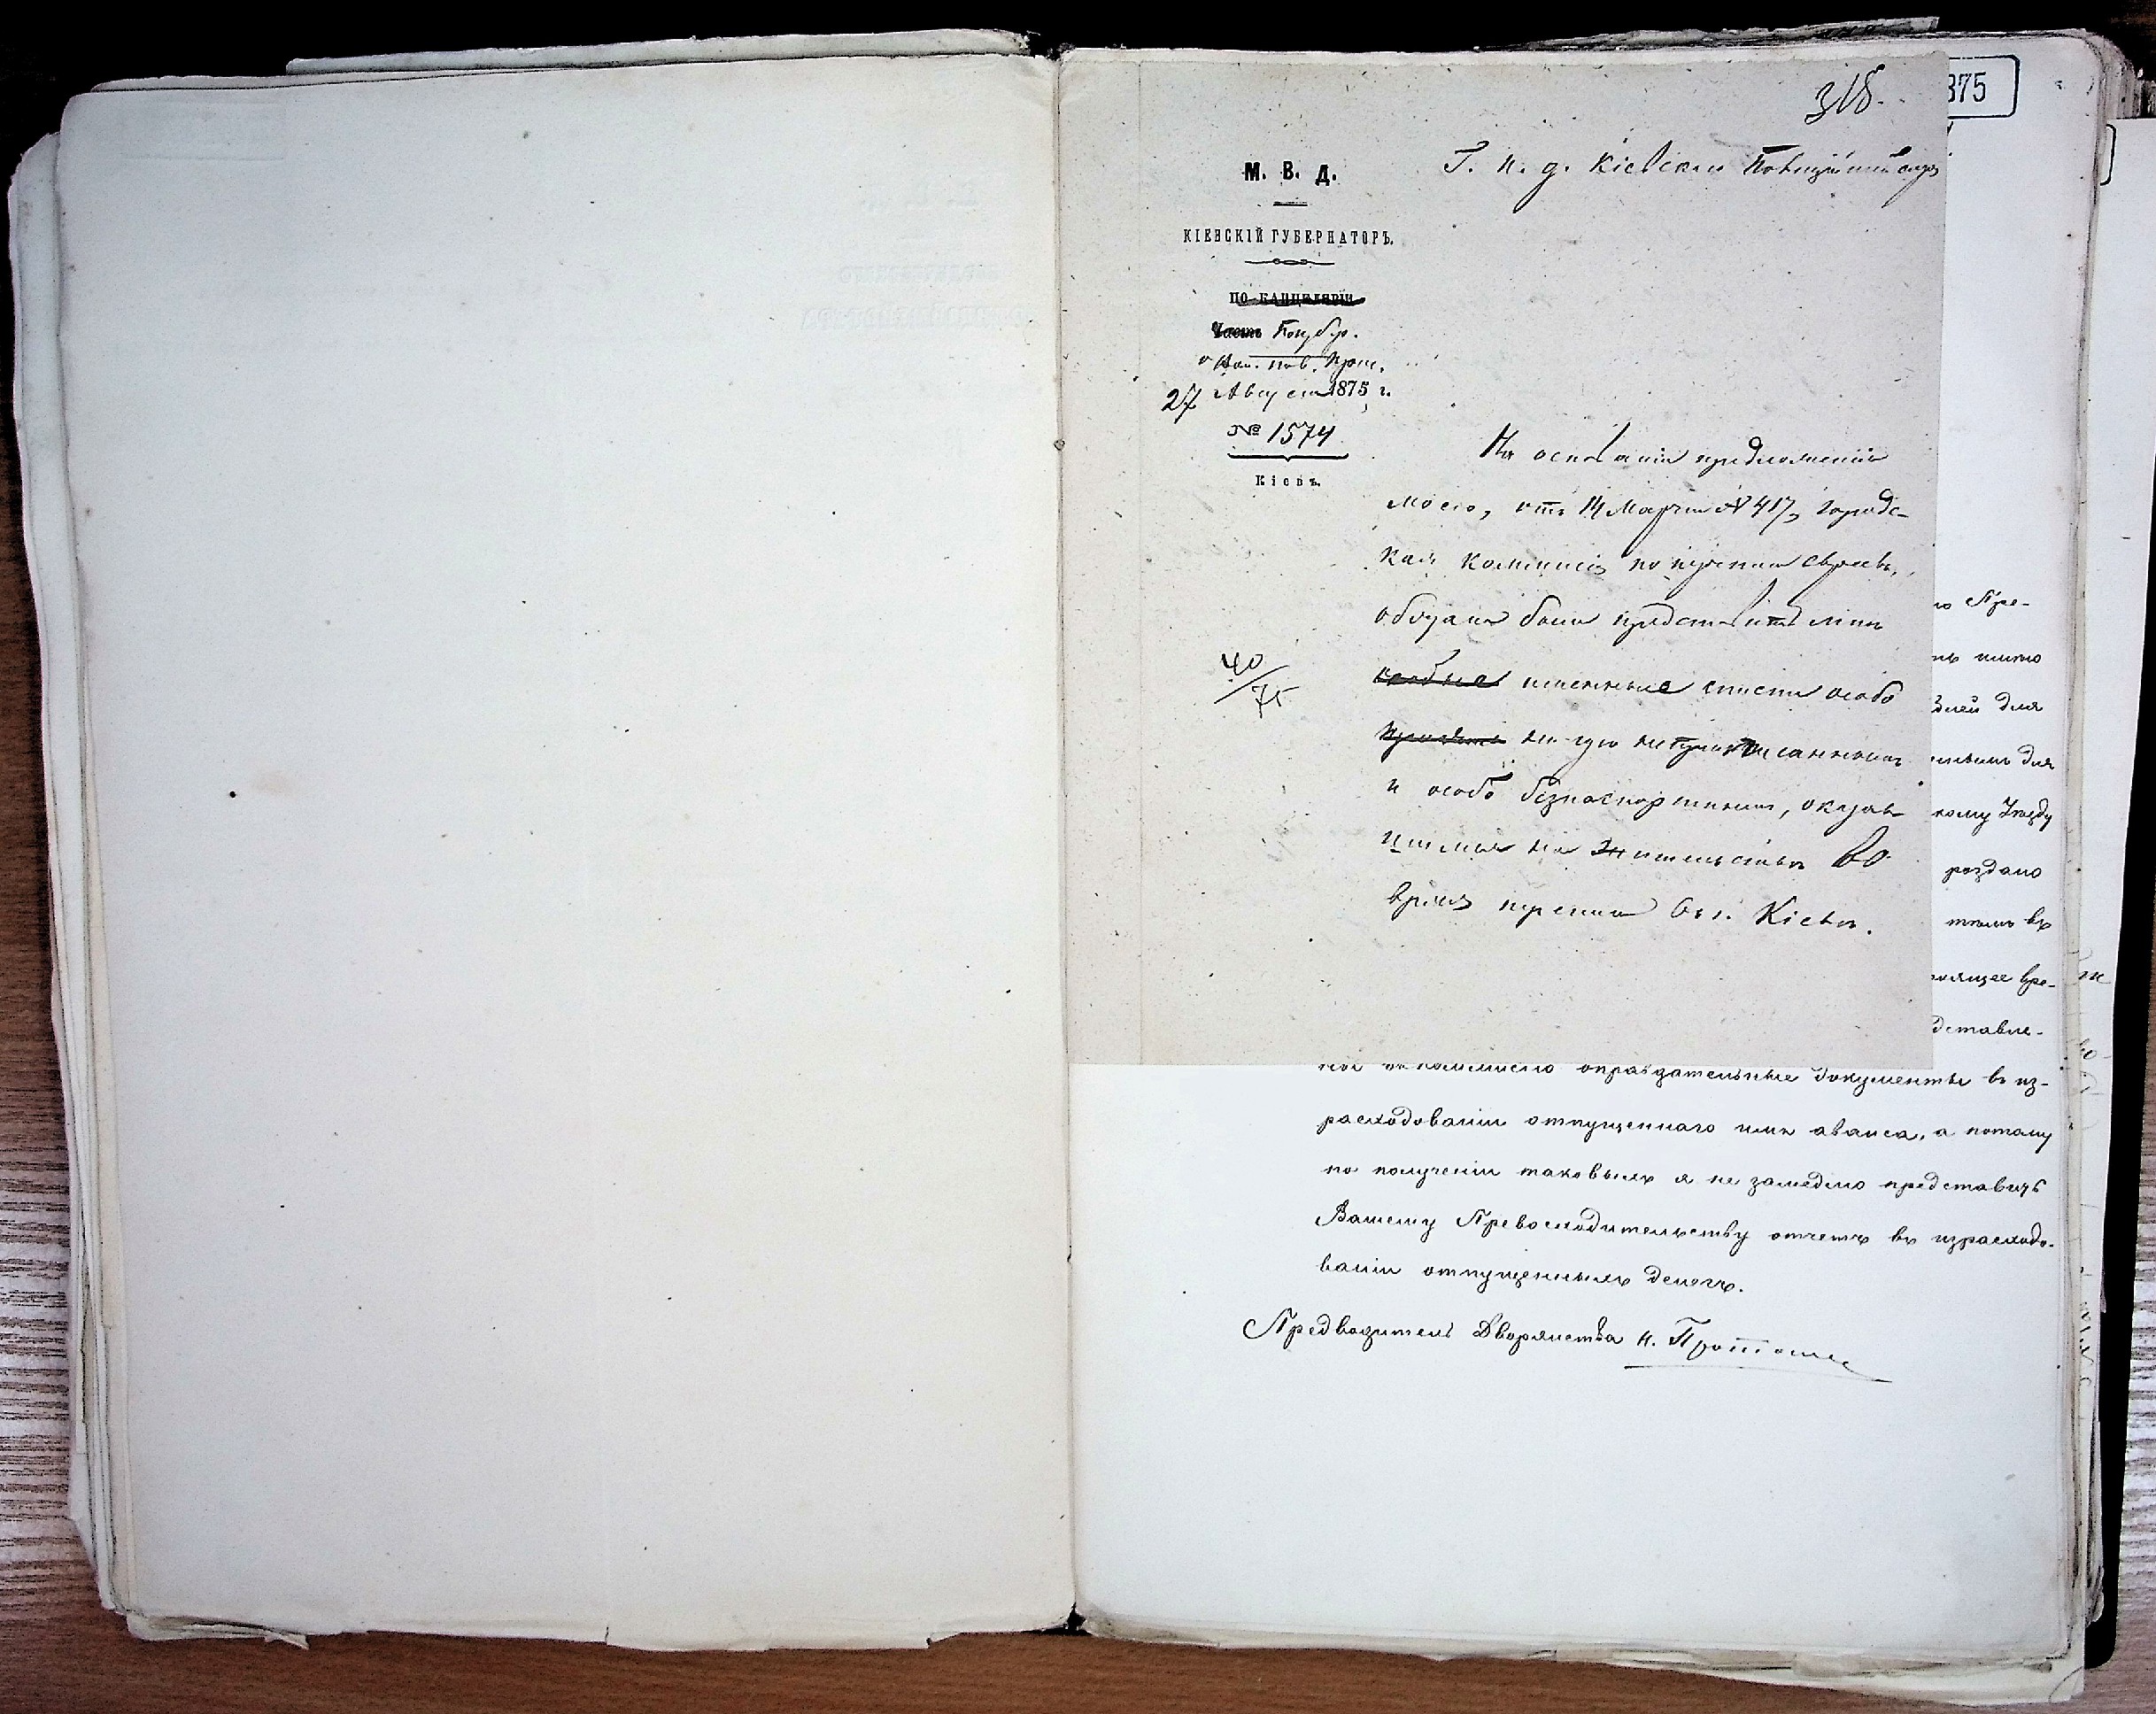 318.
875
М. В. Д.
КІЕВСКІЙ ГУБЕРНАТОРЪ.
ПО КАНЦЕЛЯРІИ
Часть
27 Августа 1875 г.
№ 1574
Кіевъ.
Г. и. д. Кіевскаго Полицiймейстера
На основаніи предложенія
моего, отъ 14 Марта № 417, городс-
кая коммисія по переписи евреевъ,
обязана была представить мнѣ
именные списки особо
нигдѣ неприписаннымъ
и особо безпаспортнымъ, оказав-
шимся на жительствѣ во
время переписи въ г. Кіевѣ.
40/75
Пре-
дней для
кому Уѣзду
роздано
тѣмъ въ
тоящее вре-
дставле-
ны въ коммисію оправдательные документы въ из-
расходованіи отпущеннаго имъ аванса, а потому
по полученіи таковыхъ я не замедлю представить
Вашему Превосходительству отчетъ въ израсходо-
ваніи отпущенныхъ денегъ.
Предводитель Дворянства